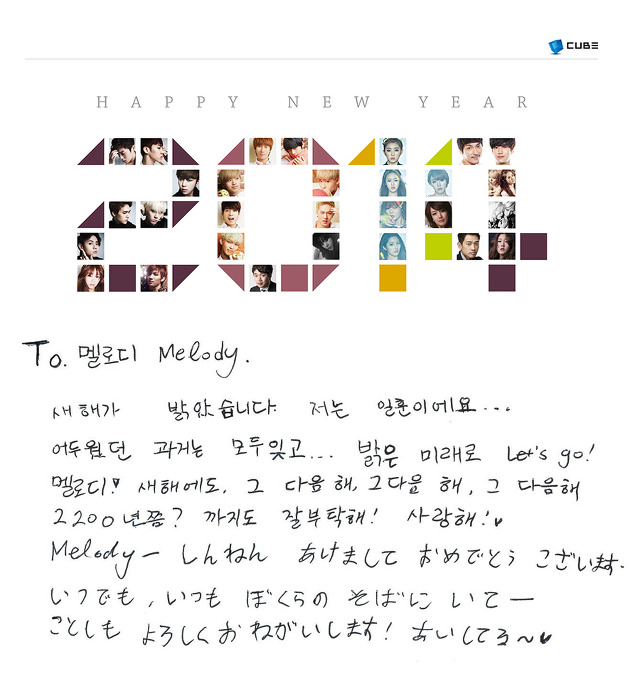 CUBE
HAPPY NEW YEAR
2014
To. 멜로디 Melody.
새해가 밝았습니다. 저는 일훈이에요...
어두웠던 과거는 모두 잊고... 밝은 미래로 Let's go!
멜로디! 새해에도, 그 다음 해, 그다음 해, 그 다음해
2200년쯤? 까지도 잘부탁해! 사랑해!♥
Melody― しんねん あけまして おめでとう ございます.
いつでも, いつも ぼくらの そばに いて ―
ことしも よろしく おねがいします! あいしてる~♥